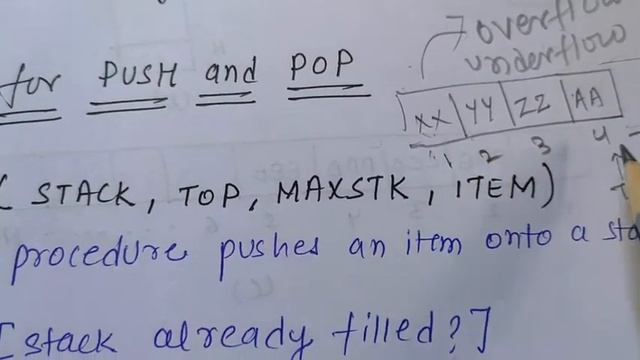 overflow
underflow
for PUSH and POP
XX YY ZZ AA
1 2 3 4
( STACK, TOP, MAXSTK, ITEM)
procedure pushes an item onto a sta
[stack already filled?]